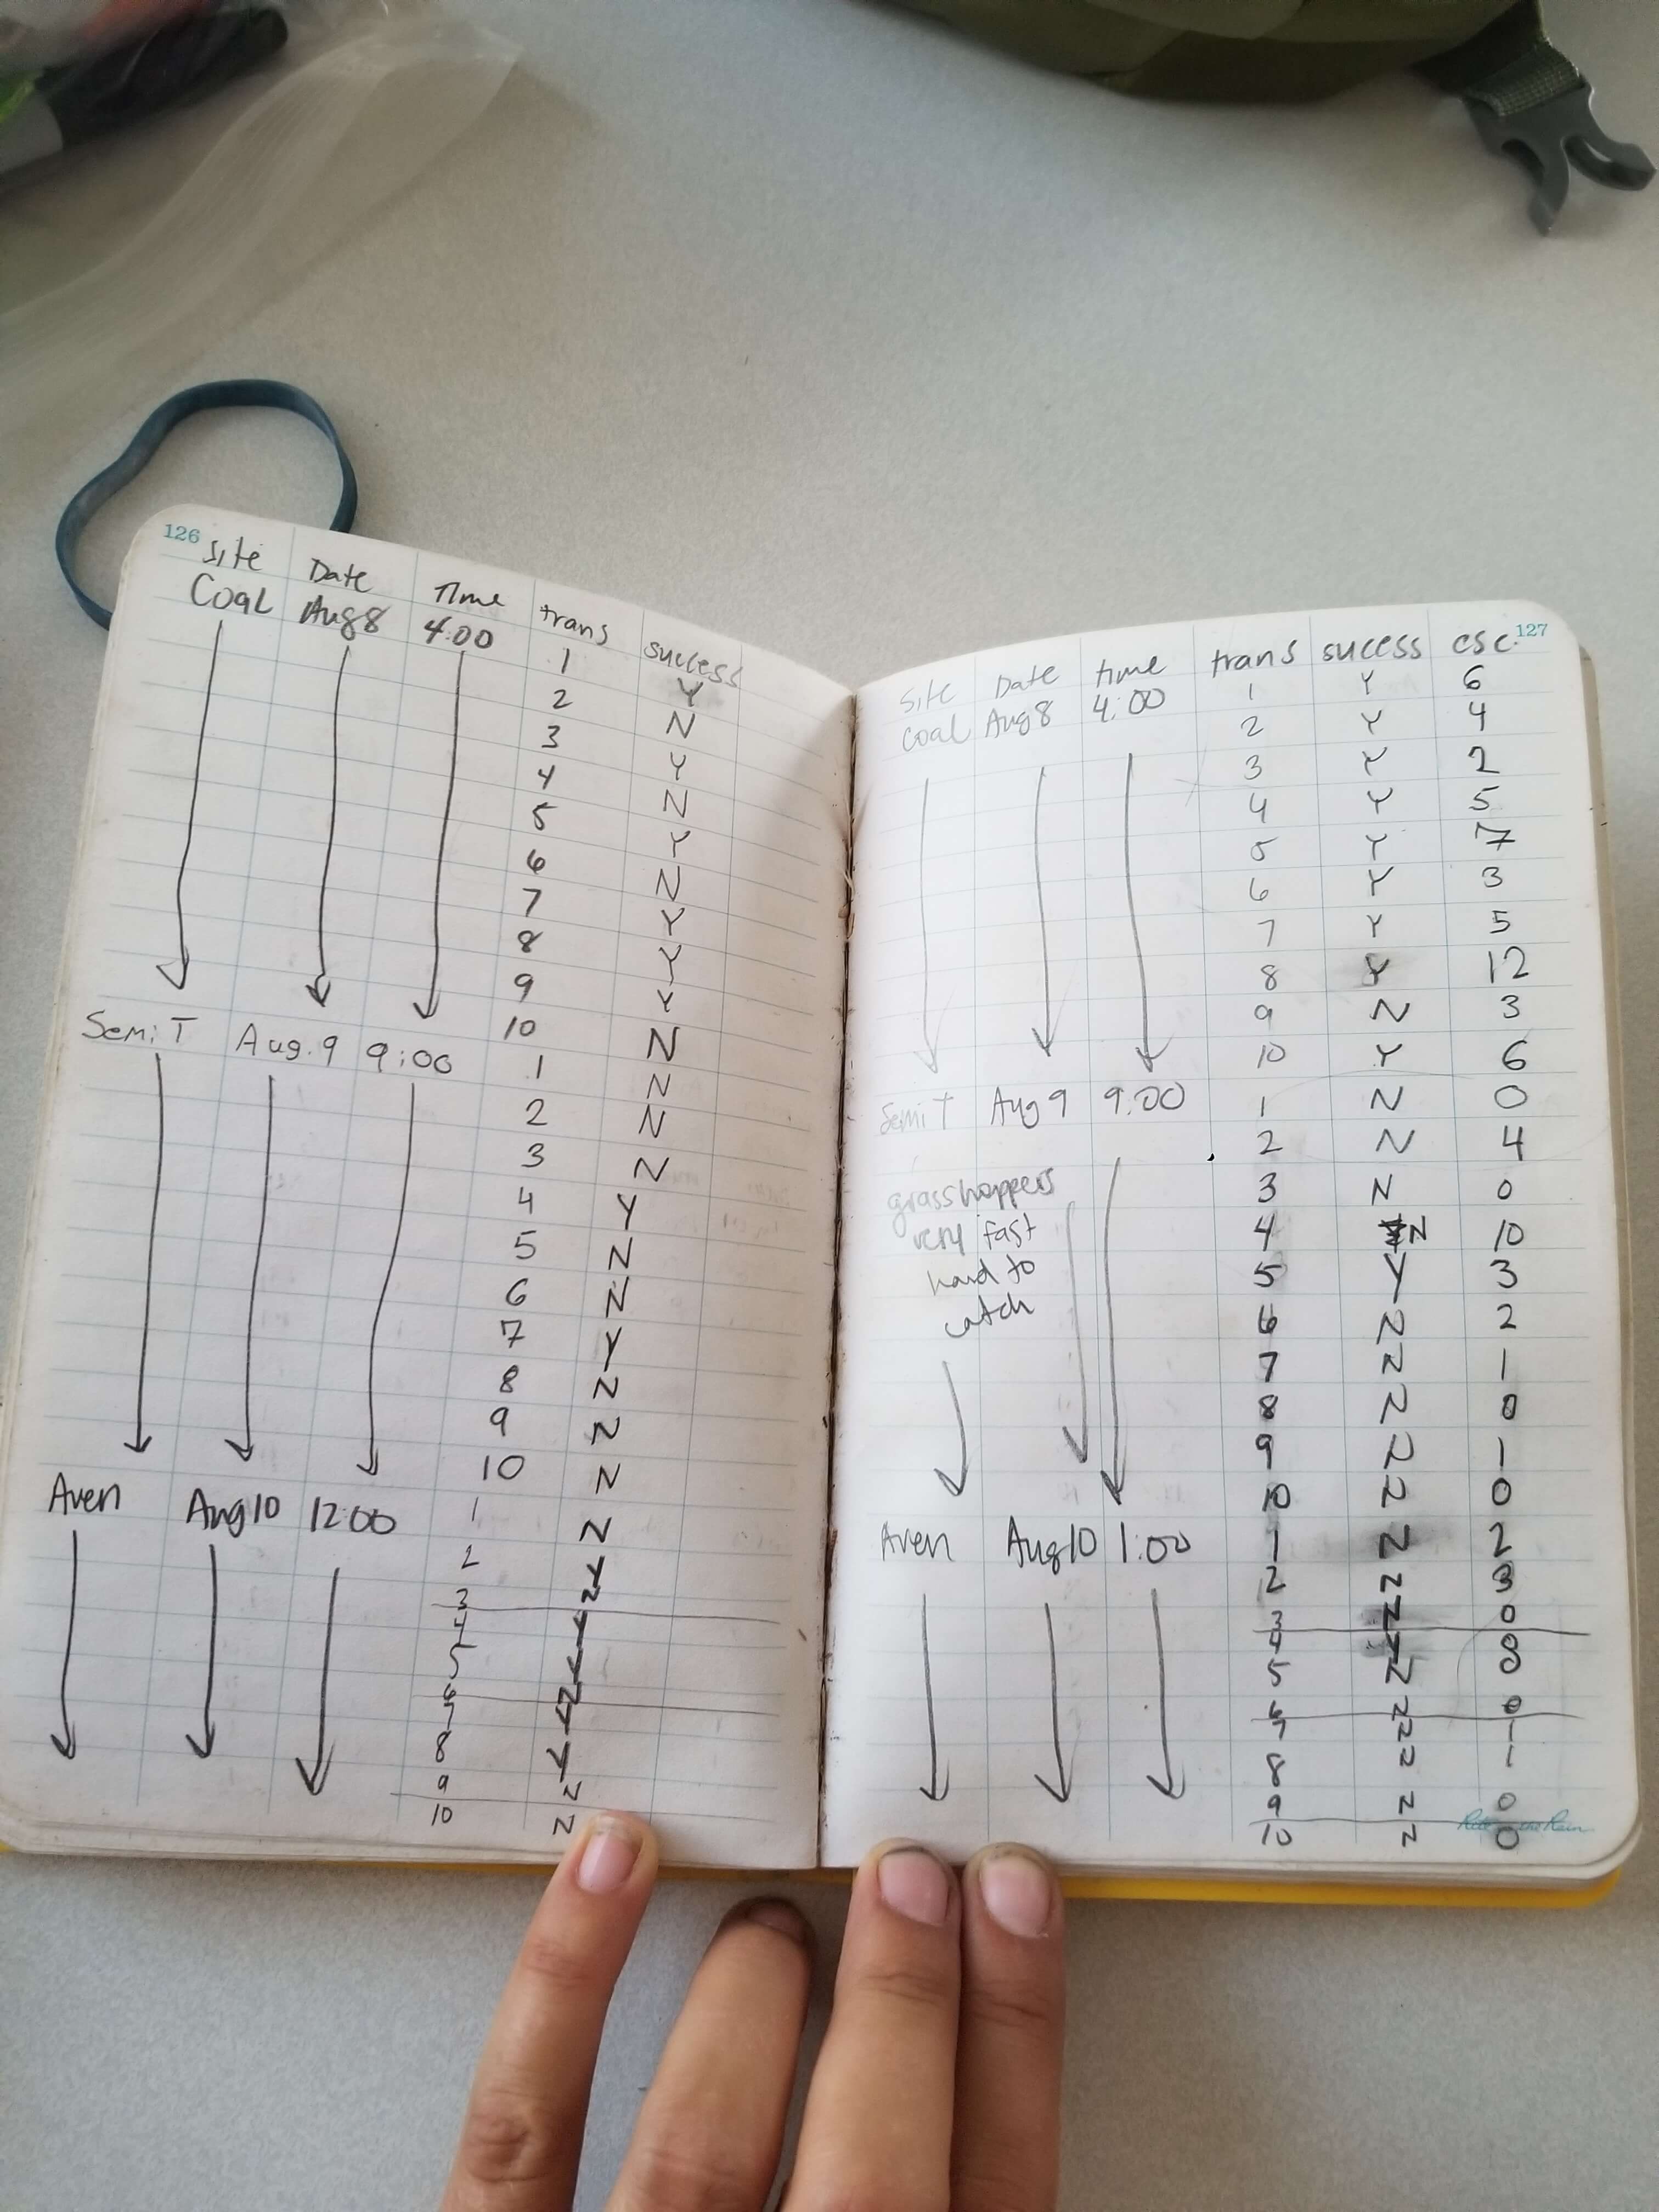 126
Site Date Time trans success
Coal Aug 8 4:00 1 Y
2 N
3 Y
4 N
5 Y
6 N
7 Y
8 Y
9 Y
10 N
Semi T Aug. 9 9:00 1 N
2 N
3 N
4 Y
5 N
6 N
7 Y
8 N
9 N
10 N
Aven Aug 10 12:00 1 N
2 Y
3 N
4 Y
5 Y
6 N
7 Y
8 Y
9 N
10 N
127
Site Date time trans sucess esc.
Coal Aug 8 4:00 1 Y 6
2 Y 4
3 Y 2
4 Y 5
5 Y 7
6 Y 3
7 Y 5
8 Y 12
9 N 3
10 Y 6
Semi T Aug 9 9:00 1 N 0
2 N 4
grasshoppers 3 N 0
very fast 4 N 10
hard to 5 Y 3
catch 6 N 2
7 N 1
8 N 0
9 N 1
10 N 0
Aven Aug 10 1:00 1 N 2
2 N 3
3 N 0
4 Y 0
5 N 0
6 N 0
7 N 1
8 N 1
9 N 0
10 N 0
Rite in the Rain